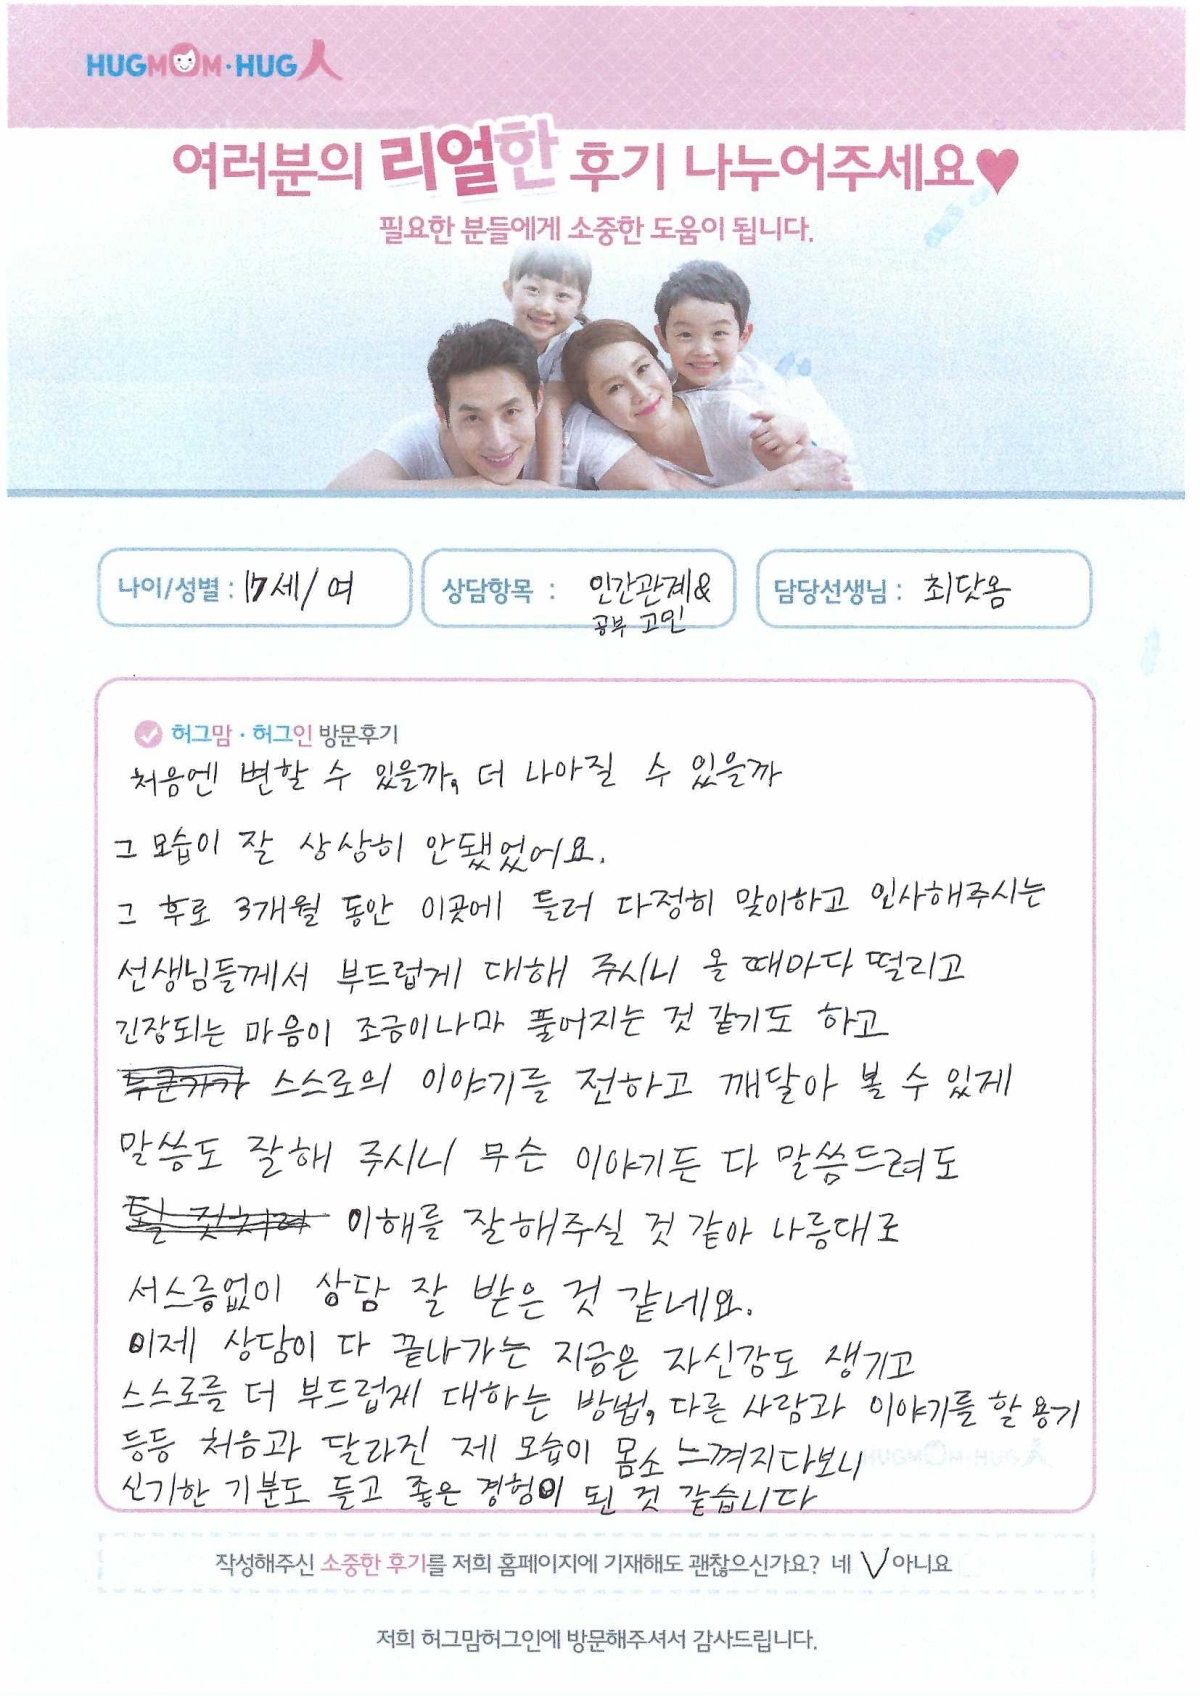 HUGMOM·HUG人
여러분의 리얼한 후기 나누어주세요♥
필요한 분들에게 소중한 도움이 됩니다.
나이/성별 : 17세/여
상담항목 : 인간관계&
공부 고민
담당선생님 : 최닷옴
허그맘·허그인 방문후기
처음엔 변할 수 있을까, 더 나아질 수 있을까
그 모습이 잘 상상히 안됐었어요.
그 후로 3개월 동안 이곳에 들러 다정히 맞이하고 인사해주시는
선생님들께서 부드럽게 대해 주시니 올 때마다 떨리고
긴장되는 마음이 조금이나마 풀어지는 것 같기도 하고
스스로의 이야기를 전하고 깨달아 볼 수 있게
말씀도 잘해 주시니 무슨 이야기든 다 말씀드려도
이해를 잘해주실 것 같아 나름대로
서스릉없이 상담 잘 받은 것 같네요.
이제 상담이 다 끝나가는 지금은 자신감도 생기고
스스로를 더 부드럽게 대하는 방법, 다른 사람과 이야기를 할 용기
등등 처음과 달라진 제 모습이 몸소 느껴지다보니
신기한 기분도 들고 좋은 경험이 된 것 같습니다
작성해주신 소중한 후기를 저희 홈페이지에 기재해도 괜찮으신가요? 네 ∨ 아니요
저희 허그맘허그인에 방문해주셔서 감사드립니다.